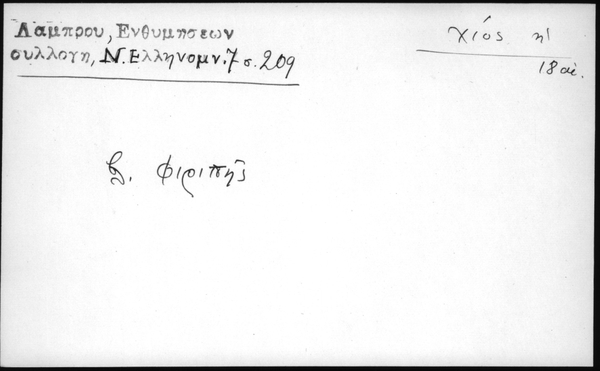 Λαμπρου, Ενθυμησεων
συλλογη, Ν. Ελληνομν. 7 σ. 209
Χίος η'
18 αἰ.
β. Φιριπῆς